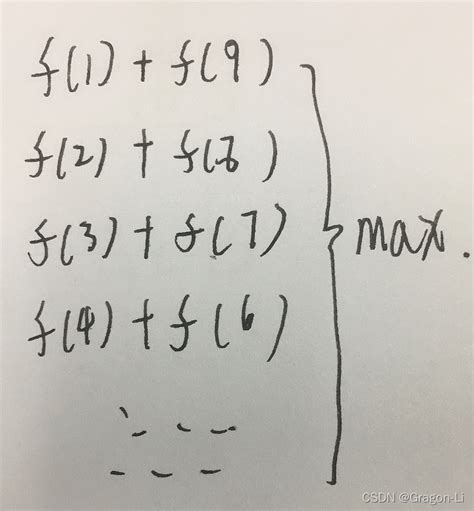 f(1) + f(9)
f(2) + f(8)
f(3) + f(7)
f(4) + f(6)
max.
CSDN @Gragon-Li